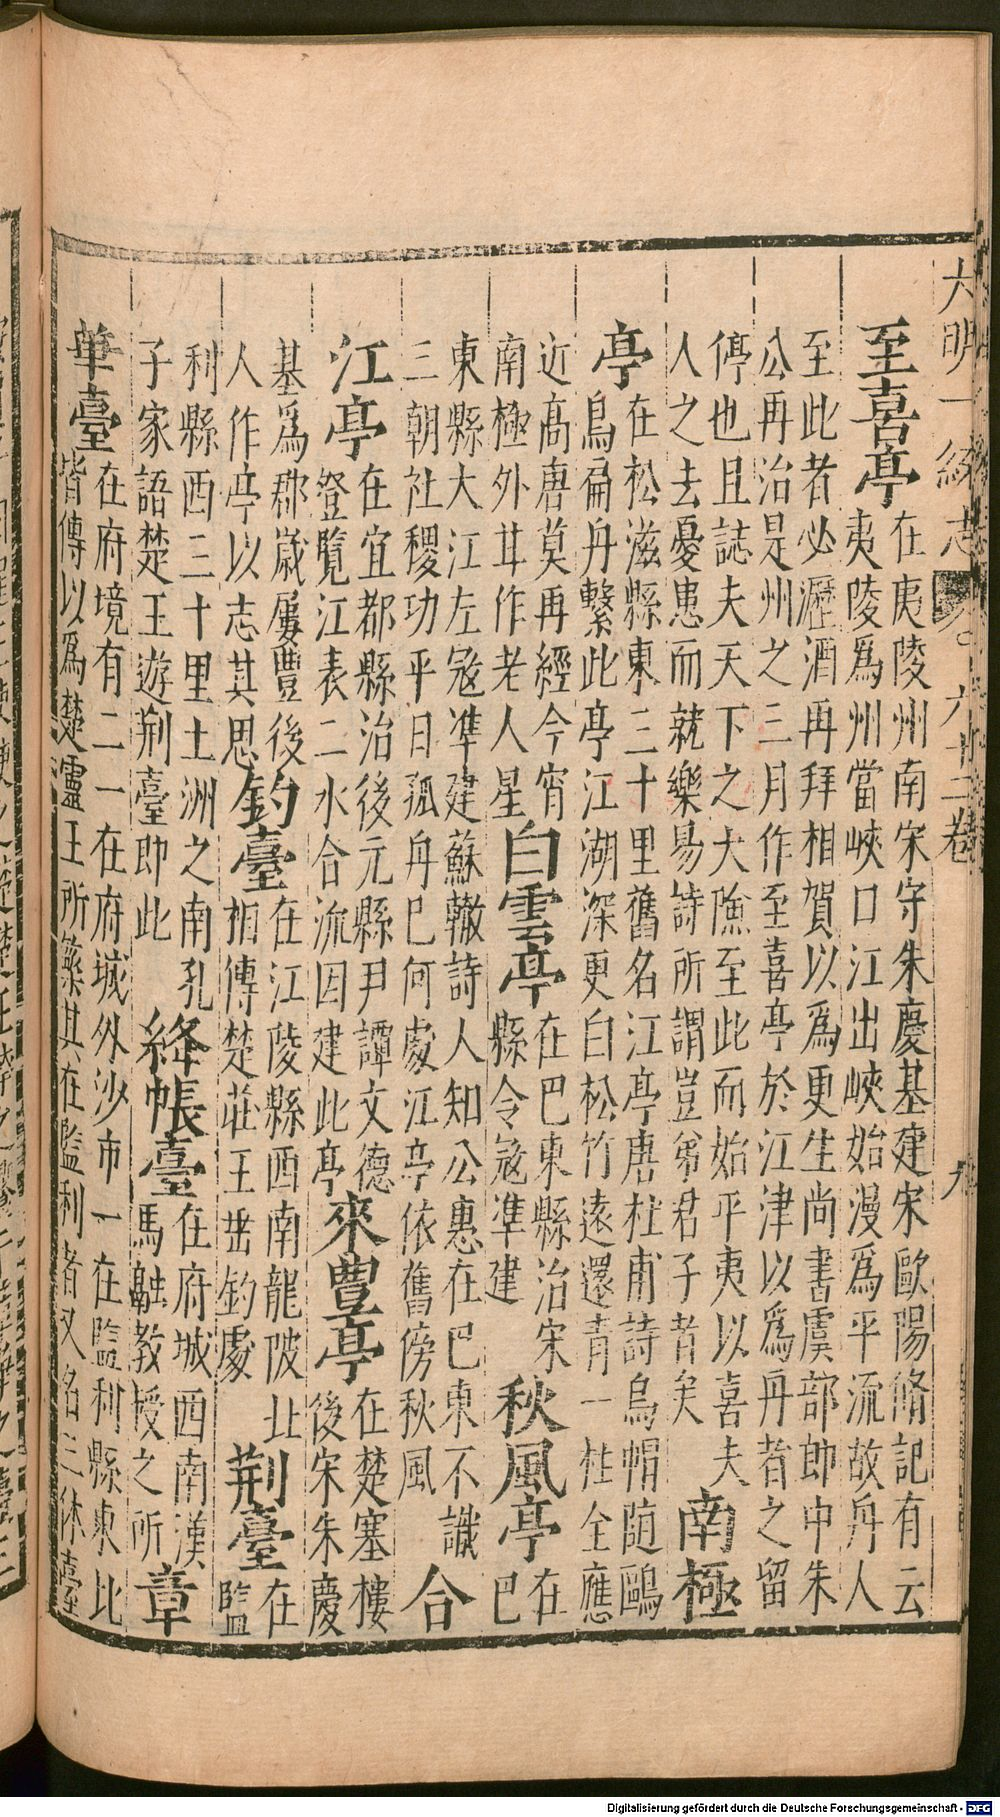 大明一統志 卷之六十二卷 九
至喜亭 在夷陵州南宋守朱慶基建宋歐陽脩記有云
夷陵為州當峽口江出峽始漫為平流故舟人
至此者必瀝酒再拜相賀以為更生尚書虞部郎中朱
公再治是州之三月作至喜亭於江津以為舟者之留
停也且誌夫天下之大險至此而始平夷以喜夫
人之去憂患而就樂易詩所謂豈弟君子者矣
南極
亭 在松滋縣東三十里舊名江亭唐杜甫詩烏帽随鷗
鳥扁舟繫此亭江湖深更白松竹遠還青一柱全應
近高唐莫再經今宵
南極外甘作老人星
白雲亭 在巴東縣治宋
縣令㓂準建
秋風亭 在
巴
東縣大江左㓂準建蘇轍詩人知公惠在巴東不識
三朝社稷功平日孤舟已何處江亭依舊傍秋風
合
江亭 在宜都縣治後元縣尹譚文德
登覽江表二水合流因建此亭
來豐亭 在楚塞樓
後宋朱慶
基為郡歲屢豐後
人作亭以志其思
釣臺 在江陵縣西南龍陂北
相傳楚莊王垂釣處
荆臺 在
監
利縣西三十里土洲之南孔
子家語楚王遊荆臺即此
絳帳臺 在府城西南漢
馬融教授之所
章
華臺 在府境有二一在府城外沙市一在監利縣東北
皆傳以為楚靈王所築其在監利者又名三休臺
Digitalisierung gefördert durch die Deutsche Forschungsgemeinschaft - DFG